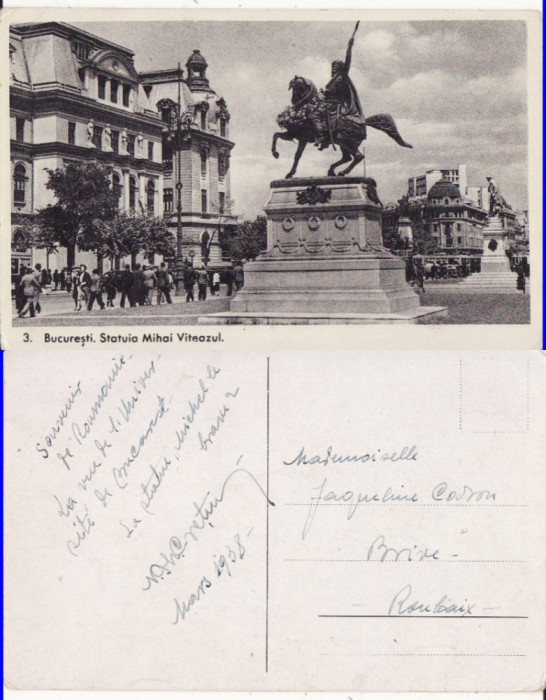 3. București. Statuia Mihai Viteazul.
Souvenir
de Roumanie
La vue de l'Univer-
sité de
La statue, Michel le
brave
Mars 1938
Mademoiselle
Jaqueline
Brive
Roubaix